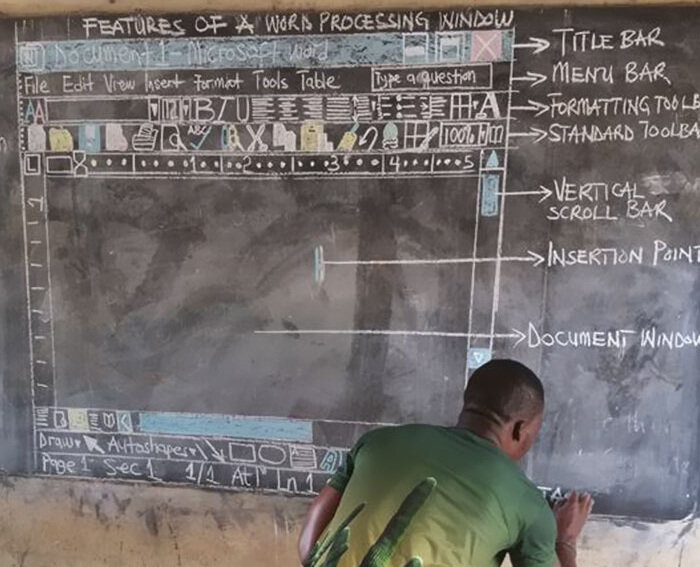 FEATURES OF A WORD PROCESSING WINDOW
Document 1 - Microsoft Word
TITLE BAR
File Edit View Insert Format Tools Table
Type a question
MENU BAR
AA
12
B I U
A
FORMATTING TOOLB
ABC
100%
STANDARD TOOLBA
L
1 2 3 4 5
1
VERTICAL
SCROLL BAR
INSERTION POINT
DOCUMENT WINDOW
Draw Autoshapes
A
Page 1 Sec 1 1/1 At 1" Ln 1